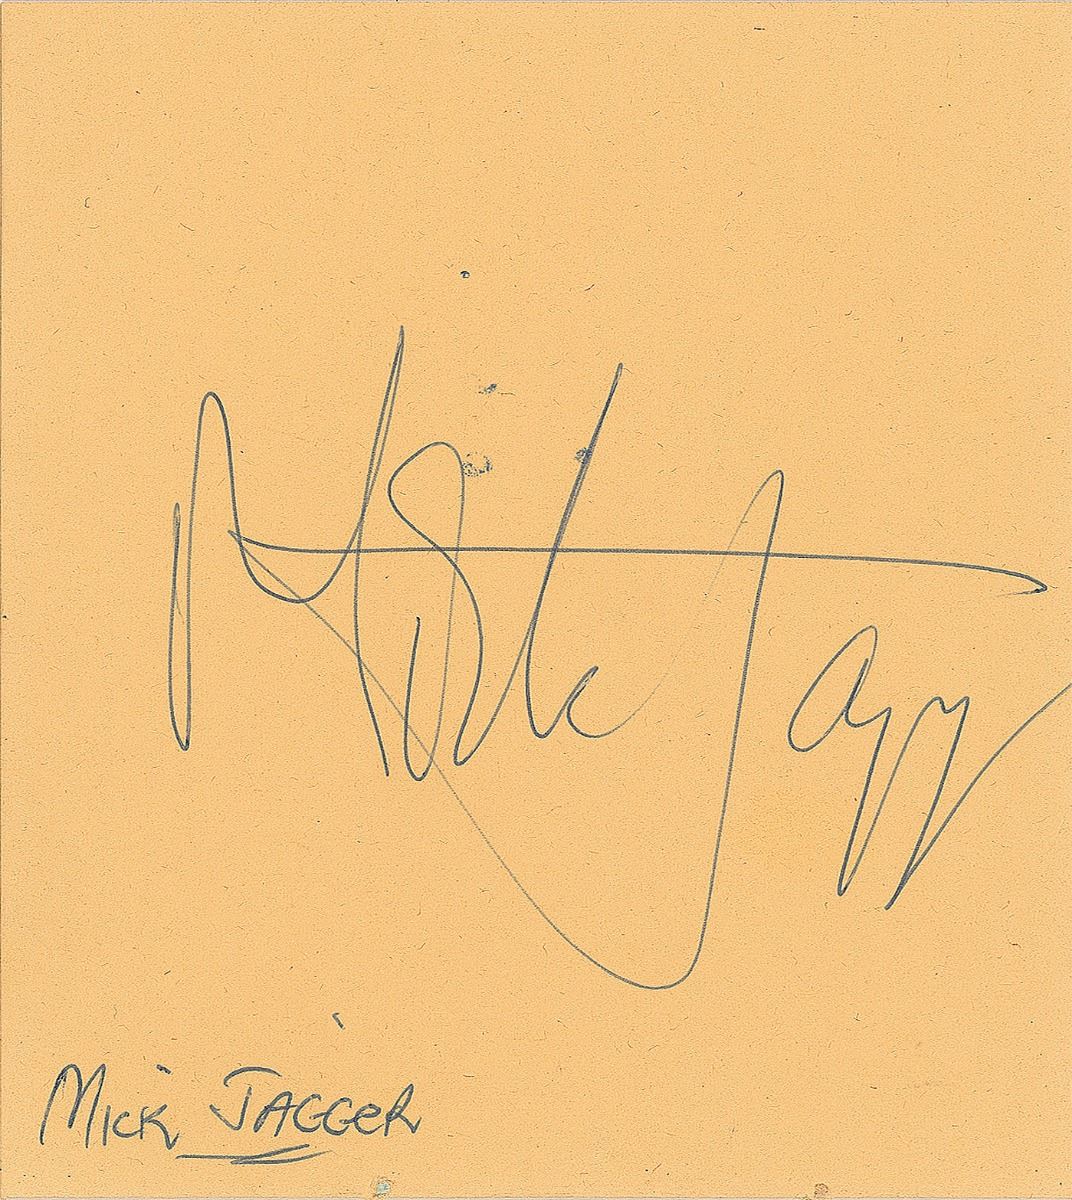 Mick Jagg
MICK JAGGER